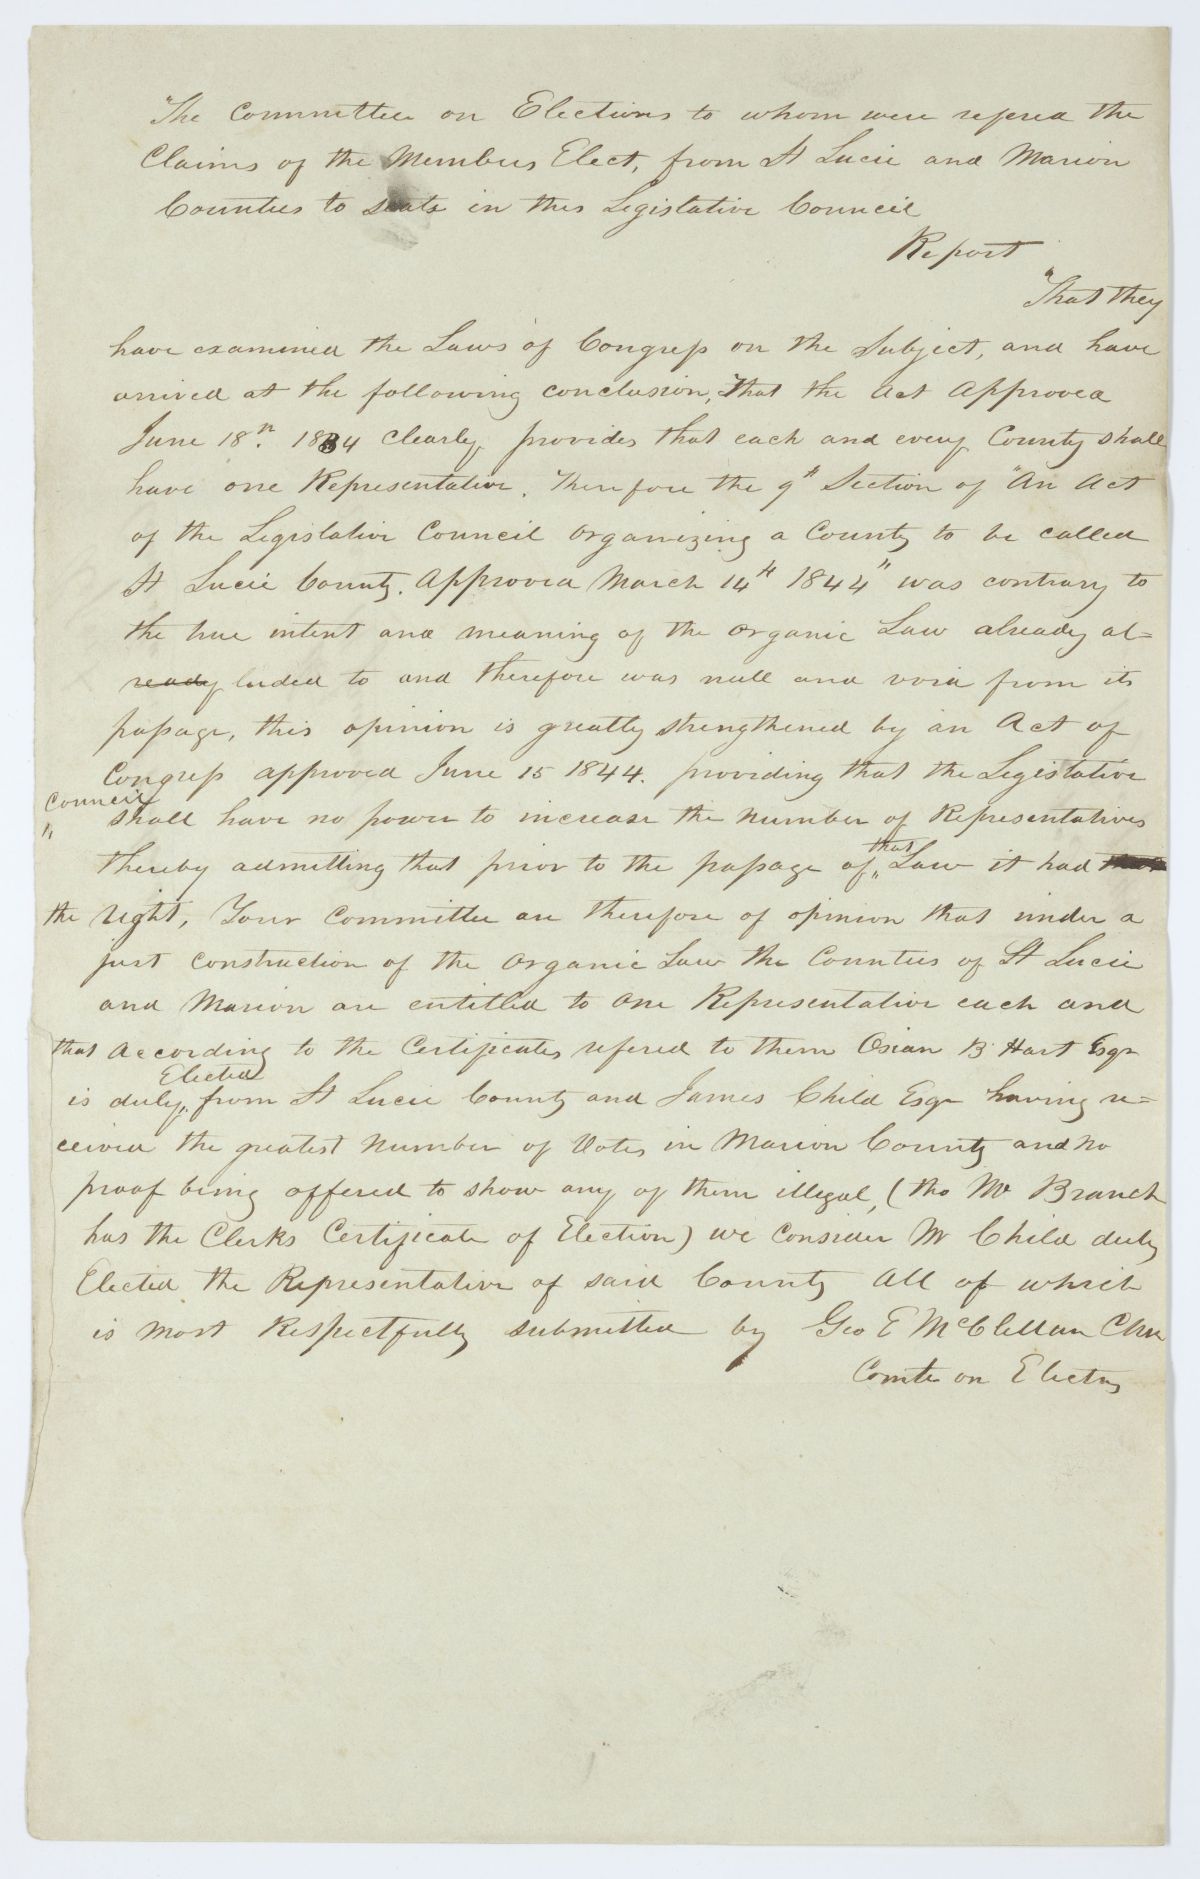 The Committee on Elections to whom were refered the
Claims of the Members Elect, from St Lucie and Marion
Counties to seats in this Legislative Council
Report
That they
have examined the Laws of Congress on the Subject, and have
arrived at the following conclusion, That the Act Approved
June 18th. 1834 clearly provides that each and every County shall
have one Representative. Therefore the 9th Section of "An Act
of the Legislative Council organizing a County to be called
St Lucie County. Approved March 14th 1844" was contrary to
the true intent and meaning of the Organic Law already al=
ready luded to and therefore was null and void from its
passage, this opinion is greatly strengthened by an Act of
Congress approved June 15 1844. providing that the Legislative
Council
" shall have no power to increase the number of Representatives
thereby admitting that prior to the passage of that Law it had
the right, Your Committee are therefore of opinion that under a
just construction of the Organic Law the Counties of St Lucie
and Marion are entitled to one Representative each and
that according to the Certificates refered to them Osian B Hart Esqr
is duly Elected from St Lucie County and James Child Esqr having re=
ceived the greatest number of Votes in Marion County and no
proof being offered to show any of them illegal, (tho Mr Branch
has the Clerks Certificate of Election) we consider Mr Child duly
Elected the Representative of said County All of which
is most Respectfully submitted by Geo E McClellan Chn
Comte on Electns